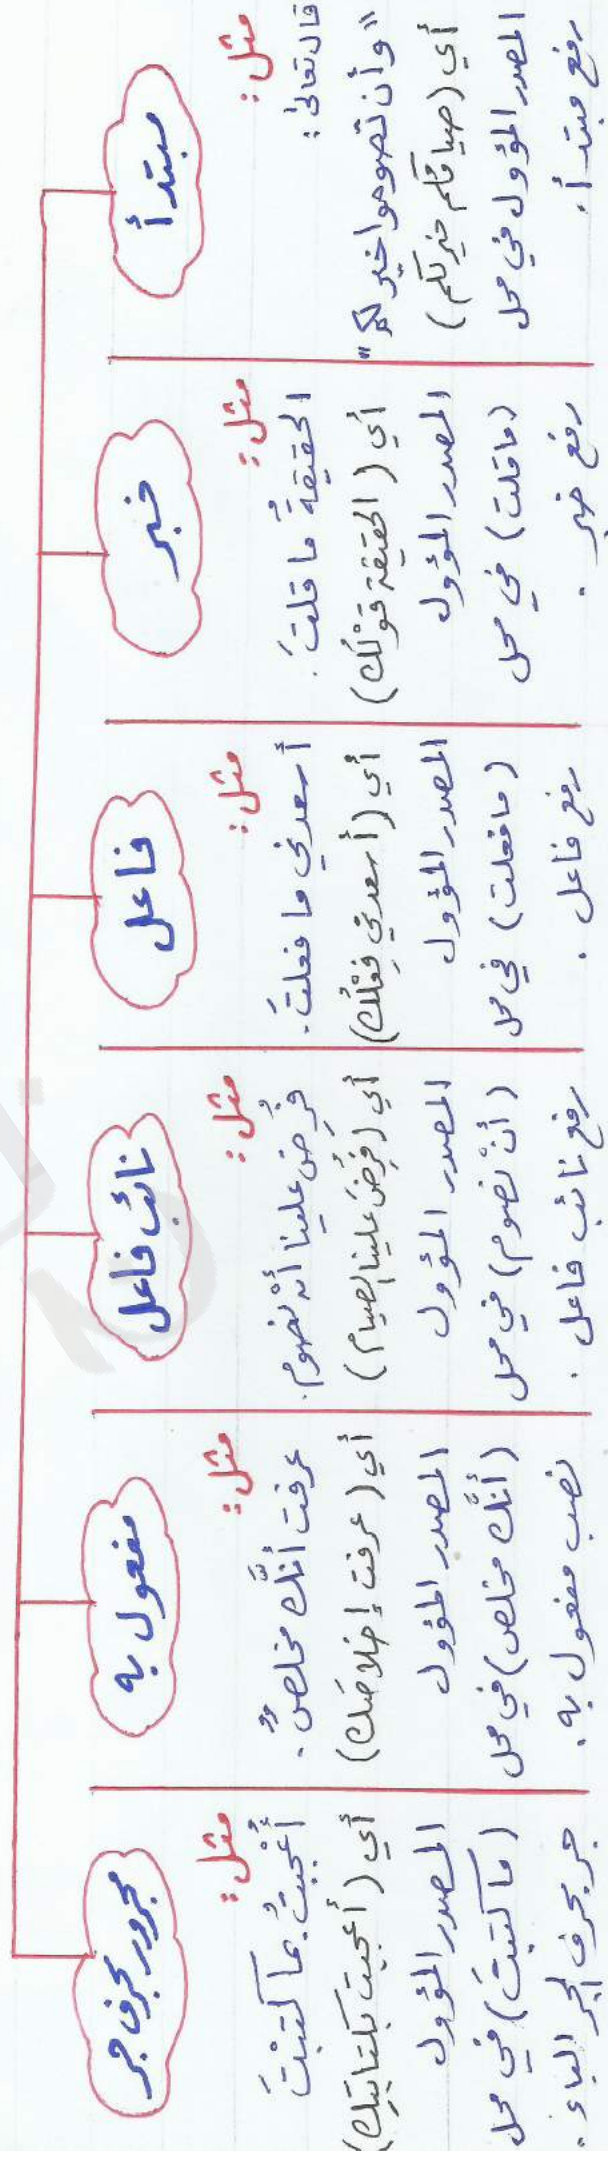 مبتدأ
مثل :
قال تعالى :
"وأن تصوموا خير لكم"
أي (صيامكم خير لكم)
المصدر المؤول في محل
رفع مبتدأ.
خبر
مثل :
الحقيقةُ ما قلتَ.
أي (الحقيقة قوْلك)
المصدر المؤول
(ما قلت) في محل
رفع خبر .
فاعل
مثل :
أسعدني ما فعلتَ.
أي (أسعدني فِعْلُك)
المصدر المؤول
(ما فعلت) في محل
رفع فاعل .
نائب فاعل
مثل :
فُرِضَ علينا أنْ نصوم.
أي (فُرِضَ علينا الصيام)
المصدر المؤول
(أنْ نصوم) في محل
رفع نائب فاعل .
مفعول به
مثل :
عرفت أنَّك مخلصٌ.
أي (عرفت إخلاصَك)
المصدر المؤول
(أنَّك مخلص) في محل
نصب مفعول به.
مجرور بحرف جر
مثل :
أُعْجِبتُ بما كتبْتَ
أي (أعجبت بكتابتِك)
المصدر المؤول
(ما كتبتَ) في محل
جر بحرف الجر الباء.